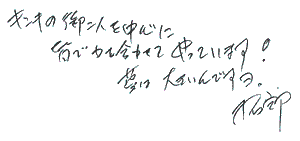 キンキの御二人を中心に
皆で力を合わせてやっています!
夢は大きいんですヨ。